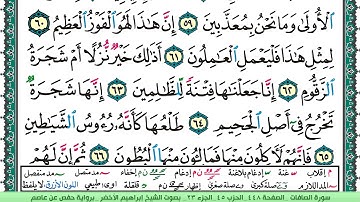 ٱلْأُولَىٰ وَمَا نَحْنُ بِمُعَذَّبِينَ ٥٩ إِنَّ هَٰذَا لَهُوَ ٱلْفَوْزُ ٱلْعَظِيمُ ٦٠
لِمِثْلِ هَٰذَا فَلْيَعْمَلِ ٱلْعَٰمِلُونَ ٦١ أَذَٰلِكَ خَيْرٌ نُّزُلًا أَمْ شَجَرَةُ
ٱلزَّقُّومِ ٦٢ إِنَّا جَعَلْنَٰهَا فِتْنَةً لِّلظَّٰلِمِينَ ٦٣ إِنَّهَا شَجَرَةٌ
تَخْرُجُ فِىٓ أَصْلِ ٱلْجَحِيمِ ٦٤ طَلْعُهَا كَأَنَّهُۥ رُءُوسُ ٱلشَّيَٰطِينِ ٦٥
فَإِنَّهُمْ لَءَاكِلُونَ مِنْهَا فَمَالِـُٔونَ مِنْهَا ٱلْبُطُونَ ٦٦ ثُمَّ إِنَّ لَهُمْ
سورة الصافات الصفحة ٤٤٨ الجزء ٤٥ الجزء ٢٣ بصوت الشيخ إبراهيم الأخضر رواية حفص عن عاصم